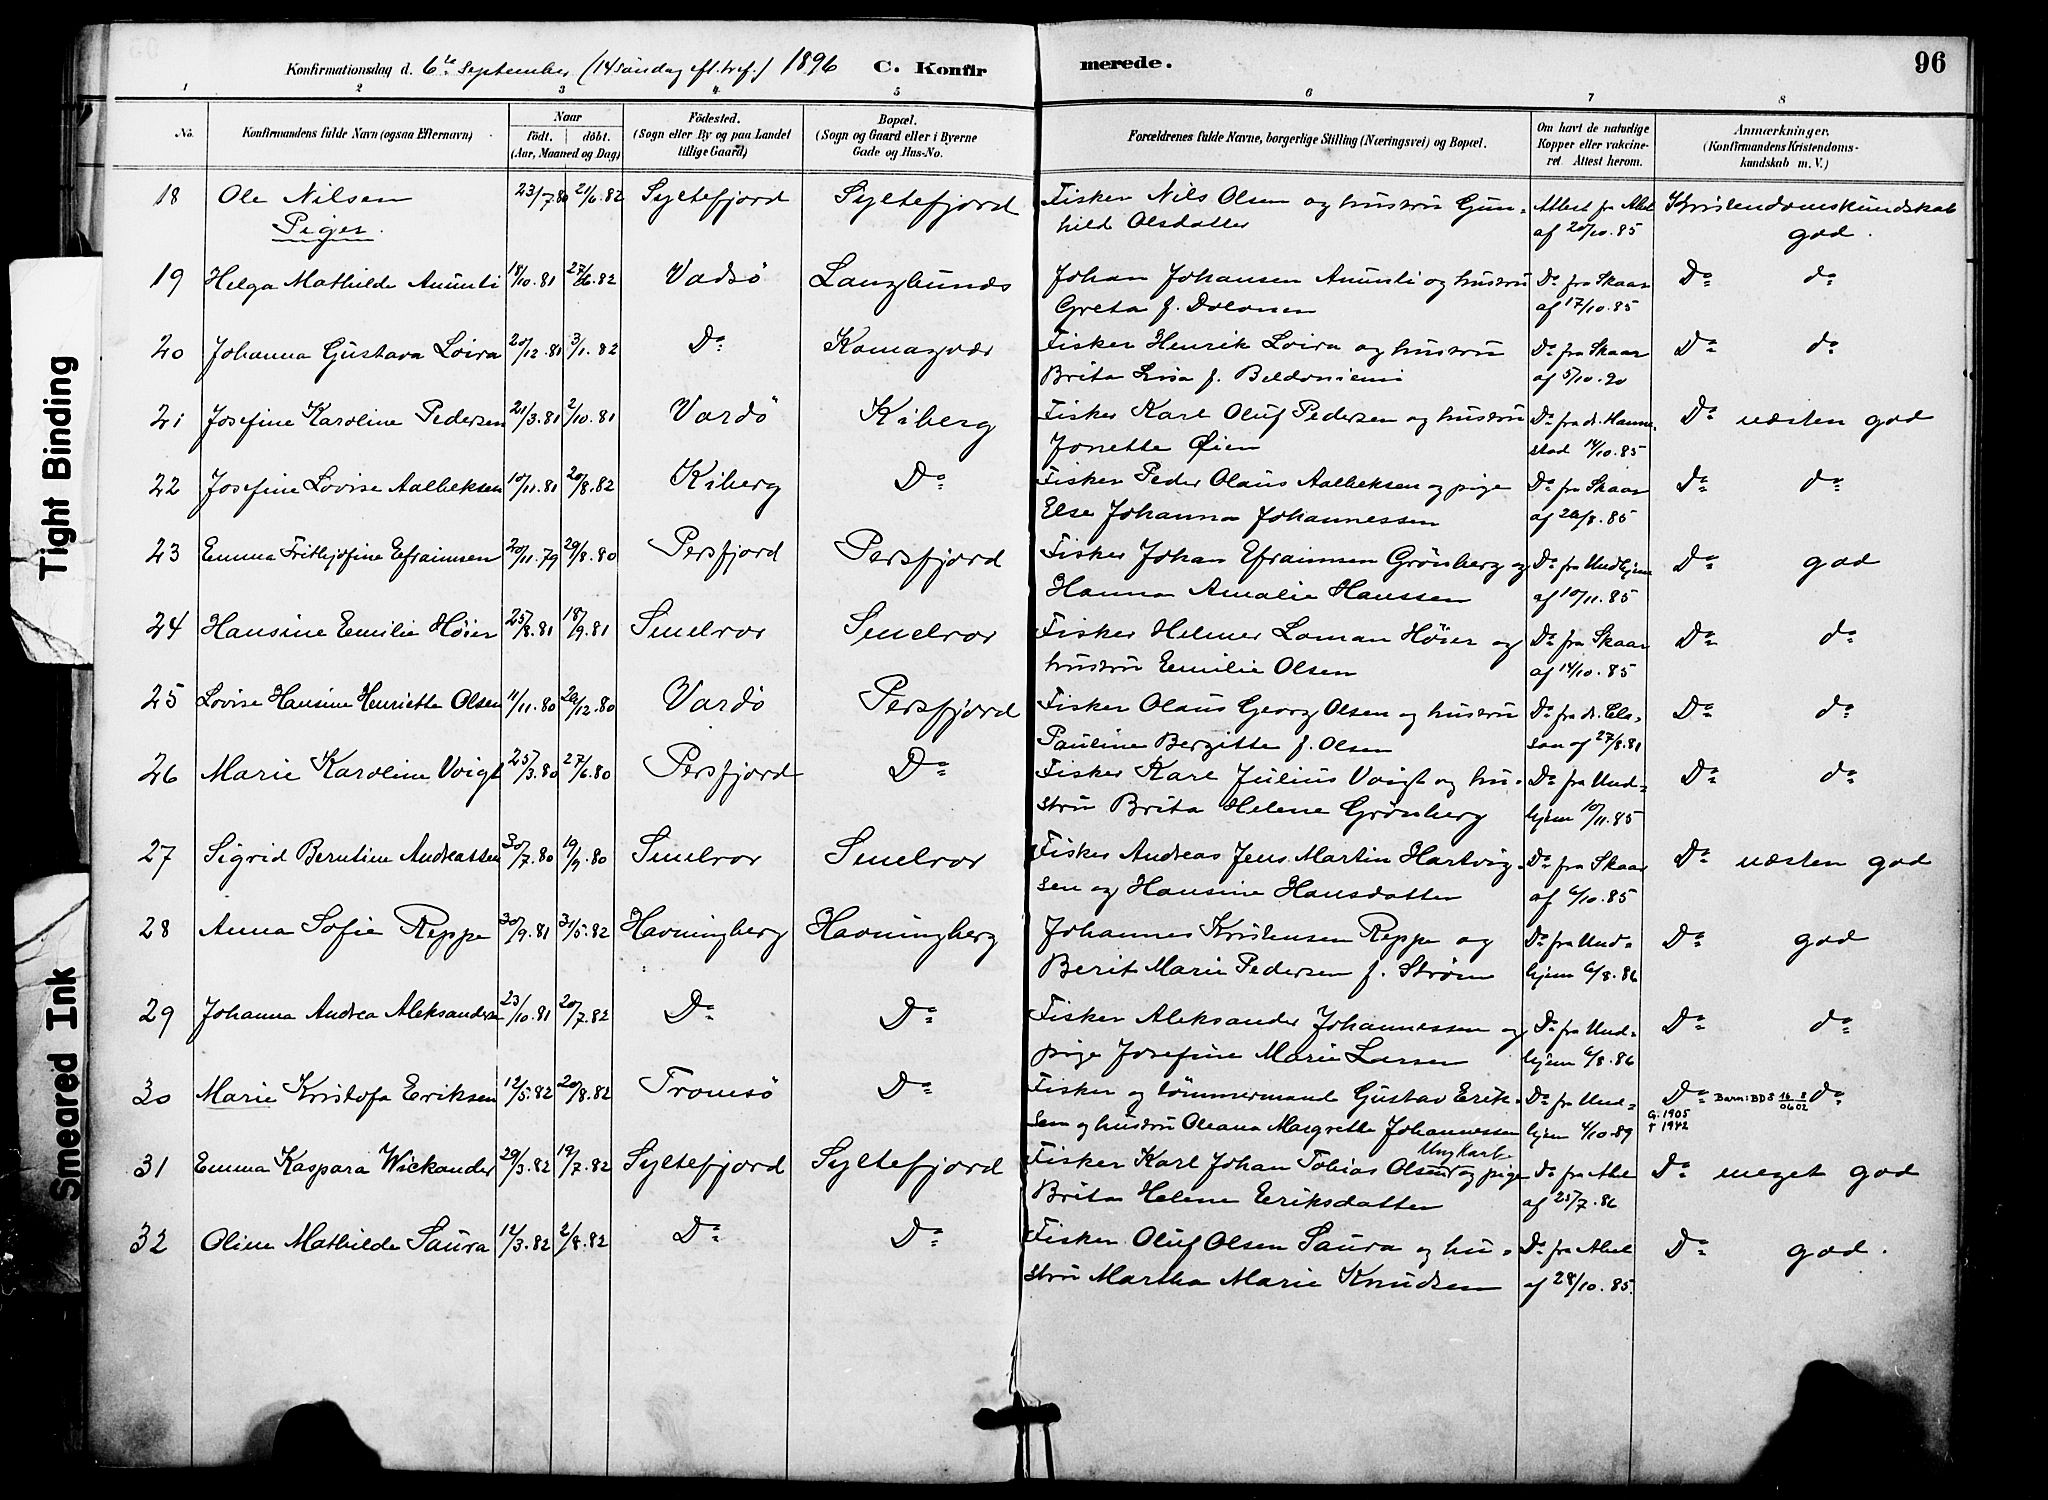 Konfirmationsdag d. 6te September (14 søndag eft. tref.) 1896 C. Konfirmerede. 96
1 2 3 4 5 6 7 8
No. Konfirmandens fulde Navn (ogsaa Efternavn) Naar født. døbt. (Aar, Maaned og Dag) Fødested. (Sogn eller By og paa Landet tillige Gaard) Bopæl. (Sogn og Gaard eller i Byerne Gade og Hus-No. Forældrenes fulde Navne, borgerlige Stilling (Næringsvei) og Bopæl. Om havt de naturlige Kopper eller vakcineret. Attest herom. Anmærkninger. (Konfirmandens Kristendomskundskab m. V.)
18 Ole Nilsen 23/7.80 21/6.82 Syltefjord Syltefjord Fisker Nils Olsen og hustru Gun- Attest fra Abel Kristendomskundskab
Piger. hild Olsdatter af 20/10.85 god.
19 Helga Mathilde Anunti 18/10.81 27/6.82 Vadsö Langbunds Johan Johansen Anunti og hustru Do fra Skaar Do do
Greta f. Dolonen af 17/10.85
20 Johanna Gustava Loira 20/12.81 3/1.82 Do Komagvær Fisker Henrik Loira og hustru Do fra Skaar Do do
Brita Lisa f. Beldoniemi af 5/10.90
21 Josefine Karoline Pedersen 21/3.81 2/10.81 Vardö Kiberg Fisker Karl Oluf Pedersen og hustru Do fra dr. Hanne- Do næsten god
Jonette Øien stad 14/10.85
22 Josefine Lovise Aalbeksen 10/11.81 20/8.82 Kiberg Do Fisker Peder Olaus Aalbeksen og pige Do fra Skaar do do
Else Johanna Johannessen af 26/8.85
23 Emma Frithjofine Efraimsen 20/11.79 29/8.80 Persfjord Persfjord Fisker Johan Efraimsen Grönberg og Do fra Undhjem Do god
Hanna Amalie Hanssen af 10/11.85
24 Hansine Emilie Höier 25/8.81 18/9.81 Smelror Smelror Fisker Helmer Loman Höier og Do fra Skaar Do do
hustru Emilie Olsen af 14/10.85
25 Lovise Hansine Henriette Olsen 11/11.80 26/12.80 Vardö Persfjord Fisker Olaus Georg Olsen og hustru Do fra dr. Cla- Do do
Pauline Bergitte f. Olsen son af 27/8.81
26 Marie Karoline Voigt 25/3.80 27/6.80 Persfjord Do Fisker Karl Julius Voigt og hu- Do fra Und- Do do
stru Brita Helene Grönberg hjem 10/11.85
27 Sigrid Berntine Andreassen 30/7.80 19/9.80 Smelror Smelror Fisker Andreas Jens Martin Hartvig- Do fra Skaar Do næsten god
sen og Hansine Hansdatter af 6/10.85
28 Anna Sofie Reppe 30/9.81 31/5.82 Havningberg Havningberg Johannes Kristensen Reppe og Do fra Und- Do god
Berit Marie Pedersen f. Ström hjem 6/8.86
29 Johanna Andrea Aleksandersen 23/10.81 20/7.82 Do Do Fisker Aleksander Johannessen og Do fra Und- Do do
pige Josefine Marie Larsen hjem 6/8.86
30 Marie Kristofa Eriksen 12/5.82 20/8.82 Tromsö Do Fisker og tömmermand Gustav Erik- Do fra Und- Do Barn: BDS 16 8/0602 do
sen og hustru Oleana Margrethe Johannessen hjem 4/10.89 G. 1905
† 1942
Ungkarl
31 Emma Kaspara Wickander 29/3.82 19/7.82 Syltefjord Syltefjord Fisker Karl Johan Tobias Olsen og pige Do fra Abel Do meget god
Brita Helene Eriksdatter af 25/7.86
32 Oline Mathilde Saura 12/3.82 2/8.82 Do Do Fisker Oluf Olsen Saura og hu- Do fra Abel Do god.
stru Martha Marie Knudsen af 28/10.85.
Tight Binding
Smeared Ink